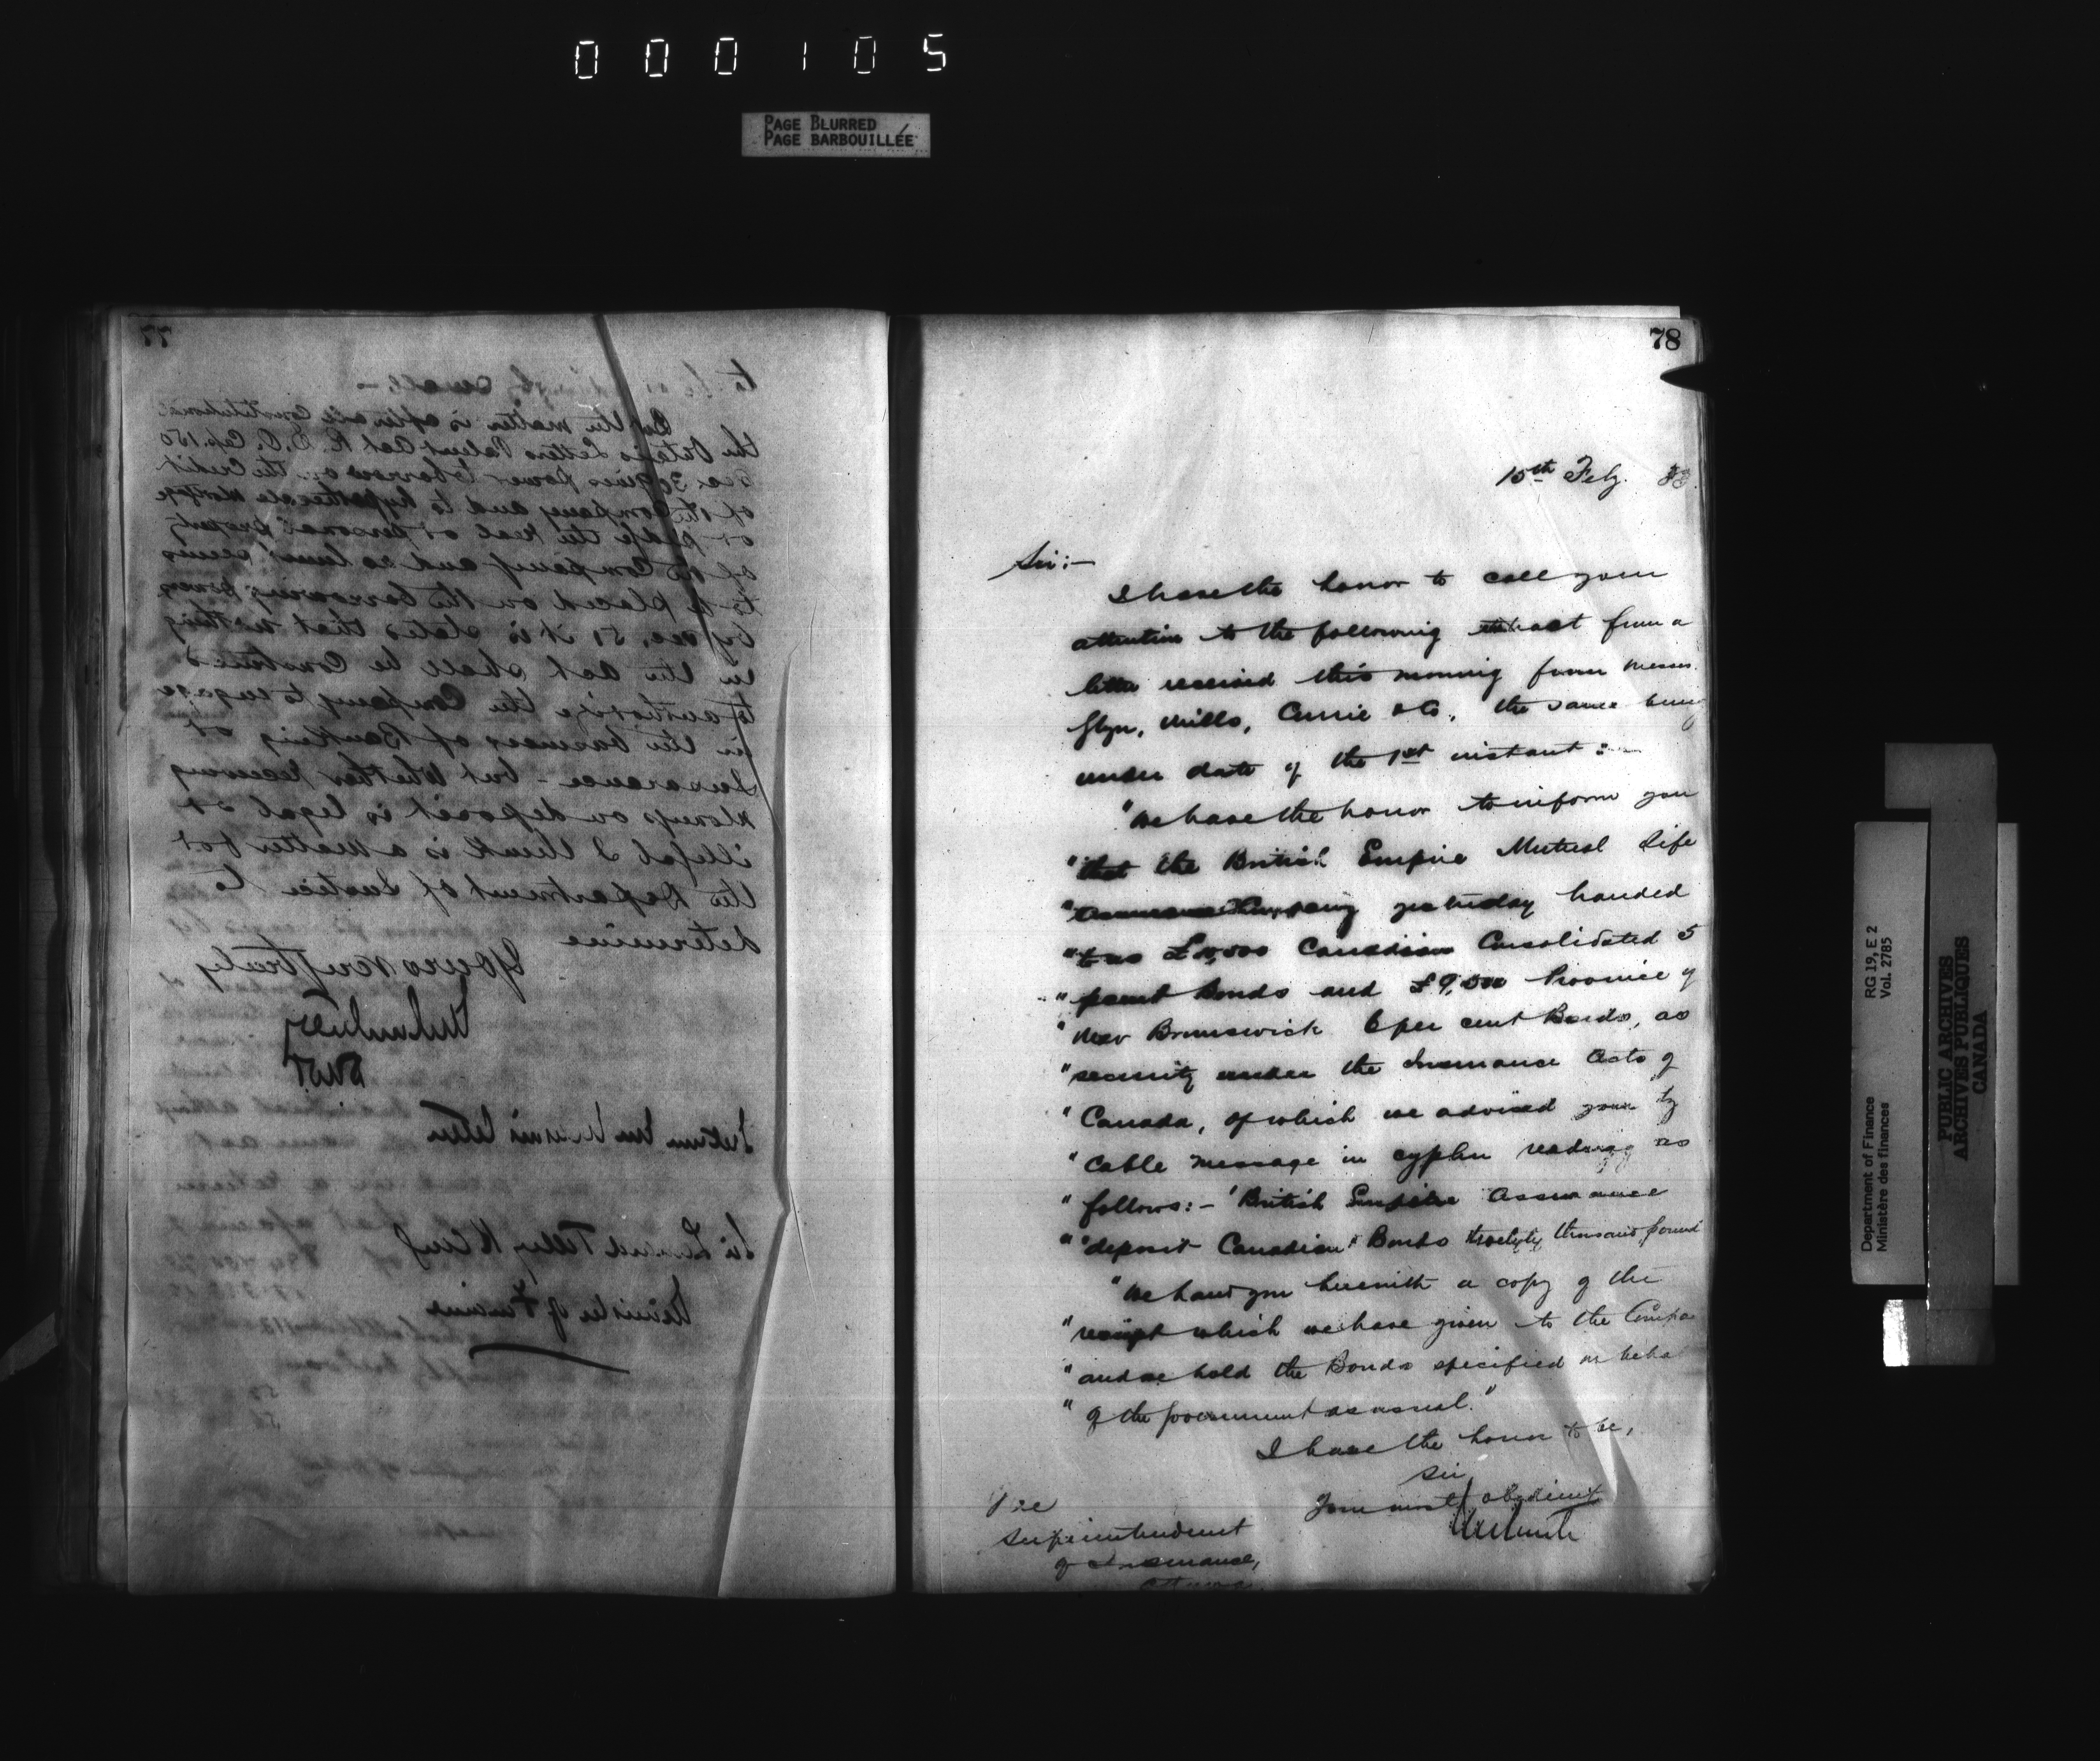 000105
PAGE BLURRED
PAGE BARBOUILLÉE
77
But the matter is after all Constitutional
the Ontario Letters Patent Act R.S.O. Cap. 150
Sec 30 gives power to borrow on the Credit
of the Company and to hypothecate Mortgage
or pledge the Real or personal property
of the Company and no limit seems
to be placed on the borrowing powers
by sec. 51 it is stated that nothing
in the Act shall be Construed
to authorize the Company to engage
in the business of Banking or
Insurance - but whether receiving
Moneys on deposit is legal or
illegal I think is a matter for
the Department of Justice to
determine
Yours very truly
DMF
Sir Leonard Tilley KCMG
Minister of Finance
78
15th Feby. 83.
Sir:-
I have the honor to call your
attention to the following extract from a
letter received this morning from Messrs.
Glyn, Mills, Currie & Co., the same being
under date of the 1st instant:-
"We have the honor to inform you
"that the British Empire Mutual Life
"Assurance Company yesterday handed
"to us Canadian Consolidated 5
"percent Bonds and £9,500 Province of
"New Brunswick 6 per cent Bonds, as
"security under the Insurance Acts of
"Canada, of which we advised you by
"Cable message in cypher reading as
"follows:- 'British Empire Assurance
"'deposit Canadian Bonds thousand pound
"We hand you herewith a copy of the
"receipt which we have given to the Compa
"and we hold the Bonds specified on beha
"of the Government as usual."
I have the honor to be,
Sir
Your most obedient
The
Superintendent
of Insurance,
Ottawa.
Department of Finance
Ministère des finances
RG 19, E 2
Vol. 2785
PUBLIC ARCHIVES
ARCHIVES PUBLIQUES
CANADA